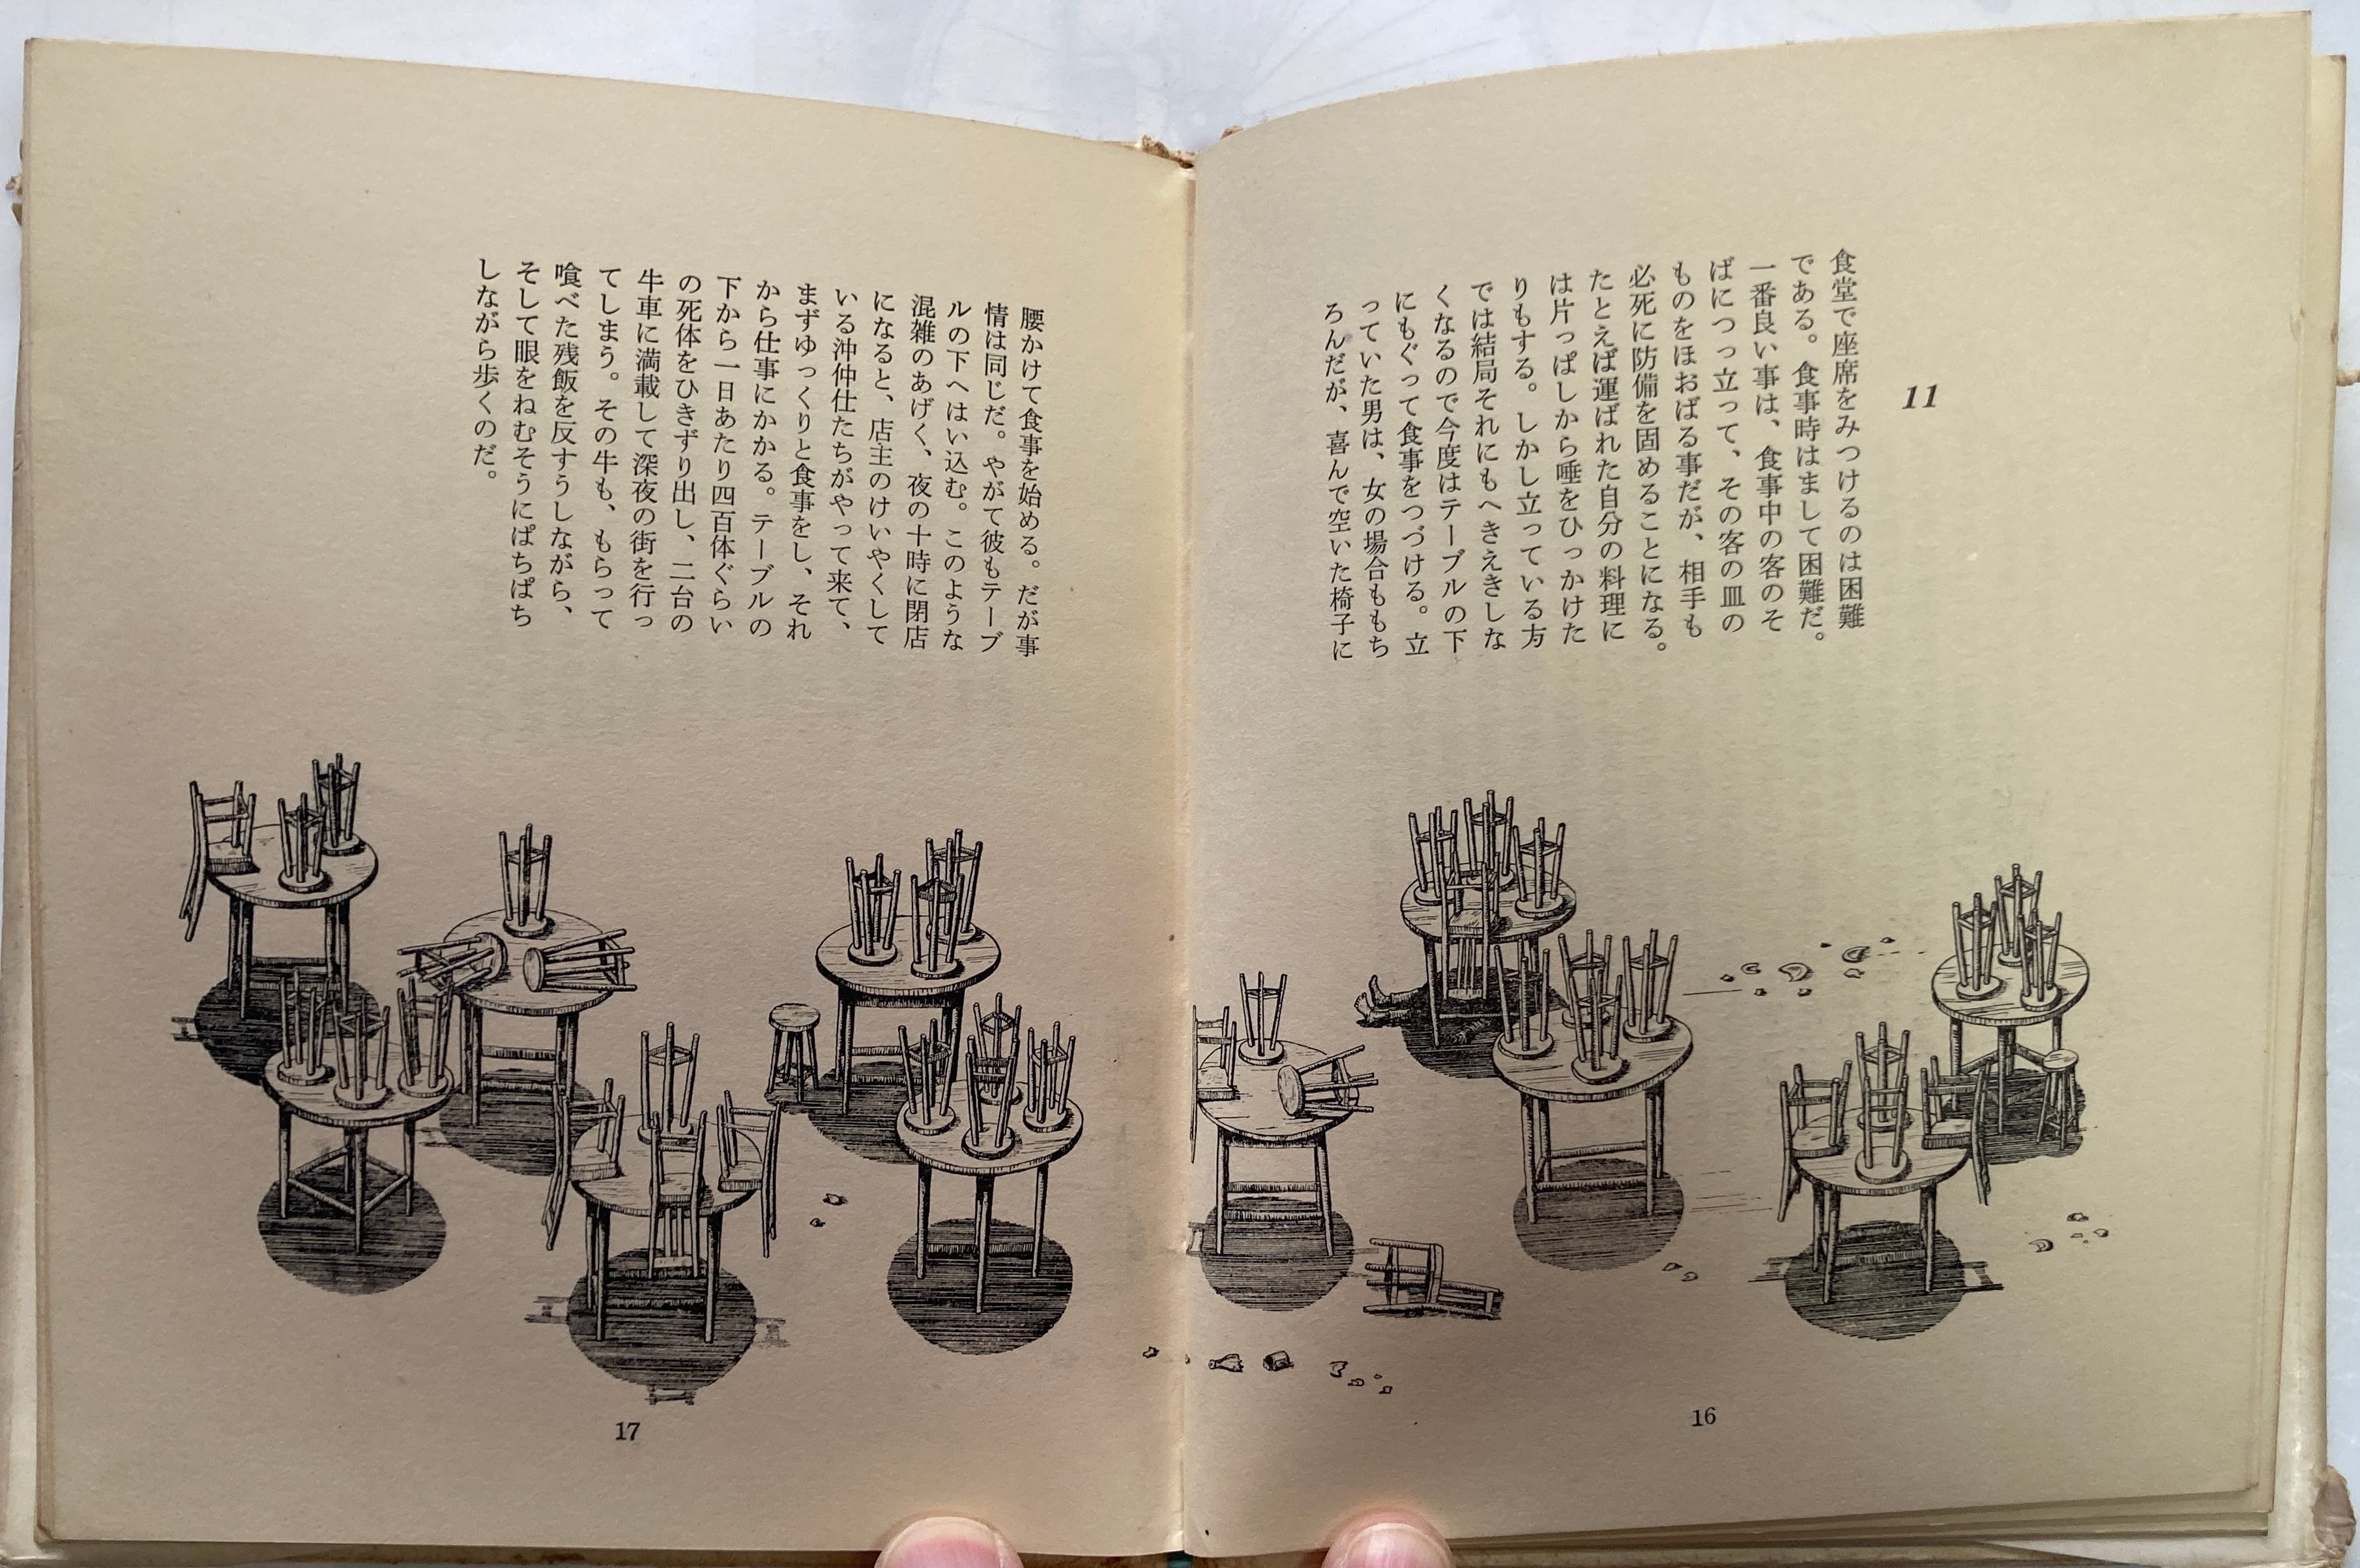 11
食堂で座席をみつけるのは困難
である。食事時はまして困難だ。
一番良い事は、食事中の客のそ
ばにつっ立って、その客の皿の
ものをほおばる事だが、相手も
必死に防備を固めることになる。
たとえば運ばれた自分の料理に
は片っぱしから唾をひっかけた
りもする。しかし立っている方
では結局それにもへきえきしな
くなるので今度はテーブルの下
にもぐって食事をつづける。立
っていた男は、女の場合ももち
ろんだが、喜んで空いた椅子に
16
腰かけて食事を始める。だが事
情は同じだ。やがて彼もテーブ
ルの下へはい込む。このような
混雑のあげく、夜の十時に閉店
になると、店主のけいやくして
いる沖仲仕たちがやって来て、
まずゆっくりと食事をし、それ
から仕事にかかる。テーブルの
下から一日あたり四百体ぐらい
の死体をひきずり出し、二台の
牛車に満載して深夜の街を行っ
てしまう。その牛も、もらって
喰べた残飯を反すうしながら、
そして眼をねむそうにぱちぱち
しながら歩くのだ。
17